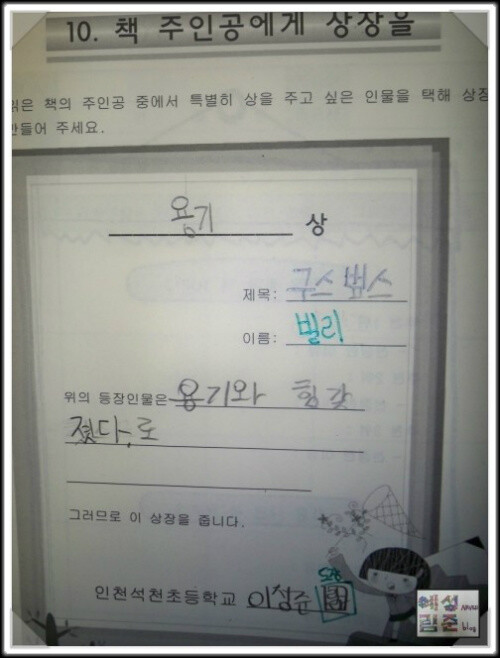 10. 책 주인공에게 상장을
읽은 책의 주인공 중에서 특별히 상을 주고 싶은 인물을 택해 상장
만들어 주세요.
용기 상
제목: 구스범스
이름: 빌리
위의 등장인물은 용기와 힘 갖
졌다,로
그러므로 이 상장을 줍니다.
인천석천초등학교 이성준
도장
혜성
림준 blog